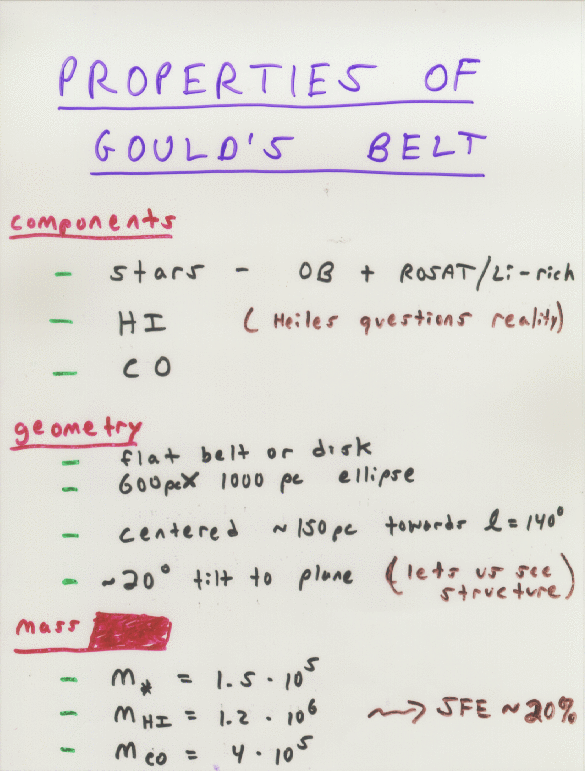 PROPERTIES OF
GOULD'S BELT
components
- stars - OB + ROSAT/Li-rich
- HI (Heiles questions reality)
- CO
geometry
- flat belt or disk
- 600pc X 1000 pc ellipse
- centered ~150pc towards l = 140°
- ~20° tilt to plane (lets us see structure)
mass
- M* = 1.5 · 10⁵
- M HI = 1.2 · 10⁶ → SFE ~ 20%
- M CO = 4 · 10⁵